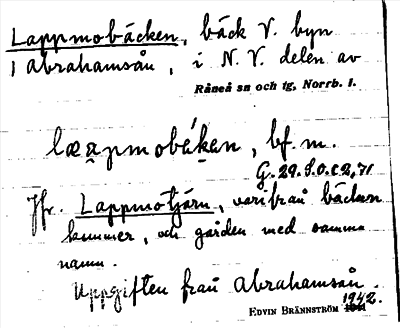 Lappmobäcken, bäck V. byn
i Abrahamsån, i N.V. delen av
Råneå sn och tg, Norrb. l.
læapmobéken, bf. m.
G. 29. S.O.C 2, 71
Jfr. Lappmotjärn, varifrån bäcken
kommer, och gården med samma
namn.
Uppgiften från Abrahamsån.
EDVIN BRÄNNSTRÖM 1942.